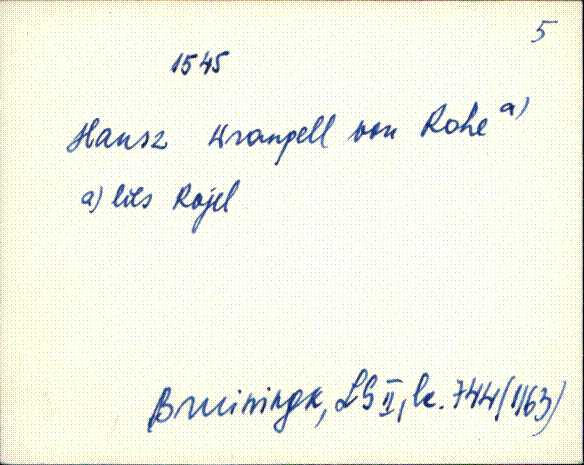 5
1545
Hansz Wrangell von Rohe a)
a) lies Rojel
Bruiningk, LG II, lk. 744 (1163)